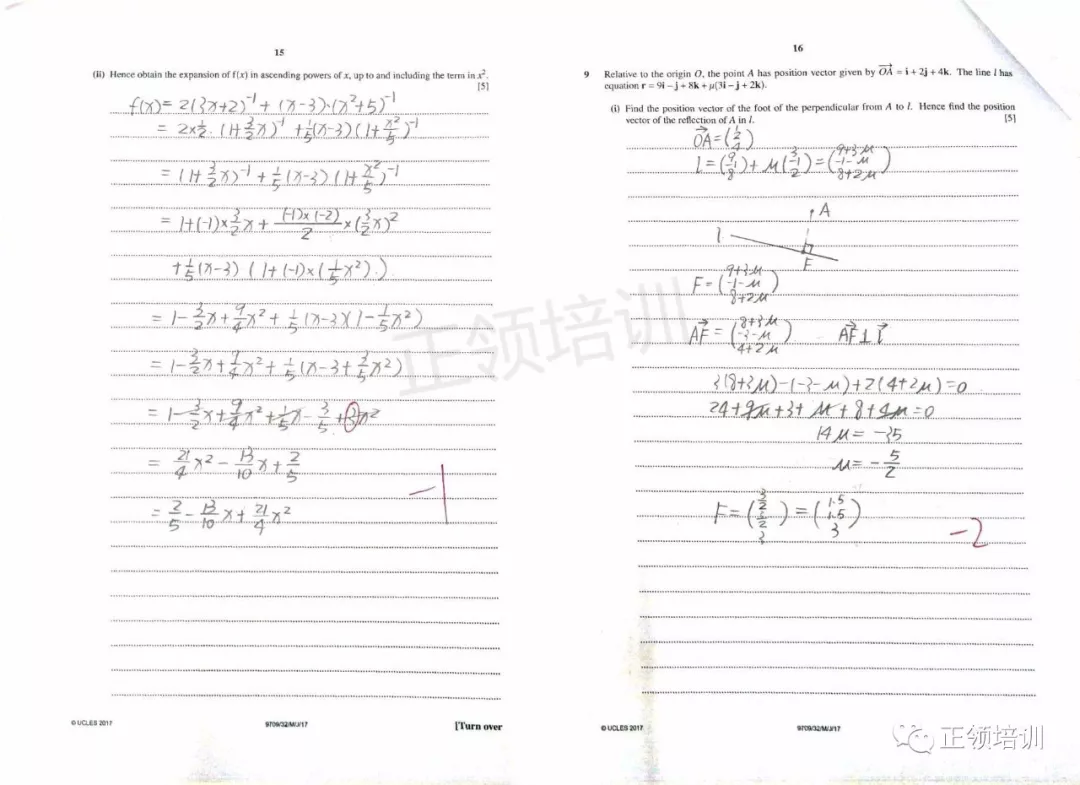 15
(ii) Hence obtain the expansion of f(x) in ascending powers of x, up to and including the term in x².
[5]
f(x) = 2(3x+2)⁻¹ + (x-3)·(x²+5)⁻¹
= 2×1/2 · (1+3/2x)⁻¹ + 1/5(x-3)(1+x²/5)⁻¹
= (1+3/2x)⁻¹ + 1/5(x-3)(1+x²/5)⁻¹
= 1+(-1)×3/2x + (-1)×(-2)/2 ×(3/2x)²
+1/5(x-3) (1+(-1)×(1/5x²))
= 1-3/2x+9/4x²+ 1/5(x-3)(1-1/5x²)
= 1-3/2x+9/4x²+ 1/5(x-3+3/5x²)
= 1-3/2x+9/4x²+1/5x-3/5+3x²
= 21/4x²-13/10x+2/5
= 2/5-13/10x+21/4x²
-1
© UCLES 2017
9709/32/M/J/17
[Turn over
16
9 Relative to the origin O, the point A has position vector given by OA = i + 2j + 4k. The line l has
equation r = 9i – j + 8k + μ(3i – j + 2k).
(i) Find the position vector of the foot of the perpendicular from A to l. Hence find the position
vector of the reflection of A in l.
[5]
OA = (1 2 4)
l = (9 -1 8) + μ(3 -1 2) = (9+3μ -1-μ 8+2μ)
A
l
F
F = (9+3μ -1-μ 8+2μ)
AF = (8+3μ -3-μ 4+2μ) AF⊥l
3(8+3μ)-(-3-μ)+2(4+2μ)=0
24+9μ+3+μ+8+4μ=0
14μ = -35
μ = -5/2
F = (3/2 3/2 3) = (1.5 1.5 3)
-2
© UCLES 2017
9709/32/M/J/17
正领培训
正领培训